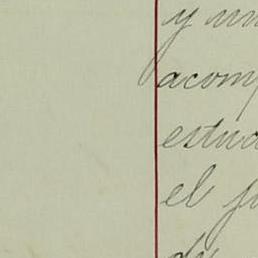 y un
acomp
estud
el